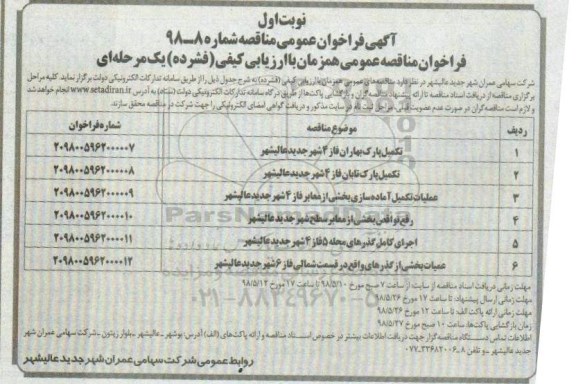 نوبت اول
آگهی فراخوان عمومی مناقصه شماره ۸ــ۹۸
فراخوان مناقصه عمومی همزمان با ارزیابی کیفی (فشرده) یک مرحله‌ای
شرکت سهامی عمران شهر جدید عالیشهر در نظر دارد مناقصه‌های عمومی همزمان با ارزیابی کیفی (فشرده) به شرح جدول ذیل را از طریق سامانه تدارکات الکترونیکی دولت برگزار نماید. کلیه مراحل
برگزاری مناقصه از دریافت اسناد مناقصه تا ارائه پیشنهاد مناقصه‌گران و بازگشایی پاکت‌ها از طریق درگاه سامانه تدارکات الکترونیکی دولت (ستاد) به آدرس www.setadiran.ir انجام خواهد شد
و لازم است مناقصه‌گران در صورت عدم عضویت قبلی، مراحل ثبت نام در سایت مذکور و دریافت گواهی امضای الکترونیکی را جهت شرکت در مناقصه محقق سازند.
ردیف موضوع مناقصه شماره فراخوان
۱ تکمیل پارک بهاران فاز ۴ شهر جدید عالیشهر ۲۰۹۸۰۰۵۹۶۲۰۰۰۰۰۷
۲ تکمیل پارک تابان فاز ۴ شهر جدید عالیشهر ۲۰۹۸۰۰۵۹۶۲۰۰۰۰۰۸
۳ عملیات تکمیل آماده سازی بخشی از معابر فاز ۴ شهر جدید عالیشهر ۲۰۹۸۰۰۵۹۶۲۰۰۰۰۰۹
۴ رفع نواقصی بخشی از معابر سطح شهر جدید عالیشهر ۲۰۹۸۰۰۵۹۶۲۰۰۰۰۱۰
۵ اجرای کامل گذرهای محله ۵ فاز ۴ شهر جدید عالیشهر ۲۰۹۸۰۰۵۹۶۲۰۰۰۰۱۱
۶ عمیات بخشی از گذرهای واقع در قسمت شمالی فاز ۶ شهر جدید عالیشهر ۲۰۹۸۰۰۵۹۶۲۰۰۰۰۱۲
مهلت زمانی دریافت اسناد مناقصه از سایت: از ساعت ۷ صبح مورخ ۹۸/۵/۱۰ تا ساعت ۱۷ مورخ ۹۸/۵/۱۲
مهلت زمانی ارسال پیشنهاد: تا ساعت ۱۷ مورخ ۹۸/۵/۲۶
مهلت زمانی ارائه پاکت الف: تا ساعت ۱۲ مورخ ۹۸/۵/۲۶
زمان بازگشایی پاکت‌ها: ساعت ۱۰ صبح مورخ ۹۸/۵/۲۷
اطلاعات تماس دستگاه مناقصه‌گزار جهت دریافت اطلاعات بیشتر در خصوص اسناد مناقصه و ارائه پاکت‌های (الف) آدرس: بوشهر ــ عالیشهر ــ بلوار زیتون ــ شرکت سهامی عمران شهر
جدید عالیشهر ــ و تلفن ۸ــ۳۳۶۸۲۰۰۶ــ۰۷۷
روابط عمومی شرکت سهامی عمران شهر جدید عالیشهر
ParsNamad
۰۲۱-۸۸۳۴۹۶۷۰-۵